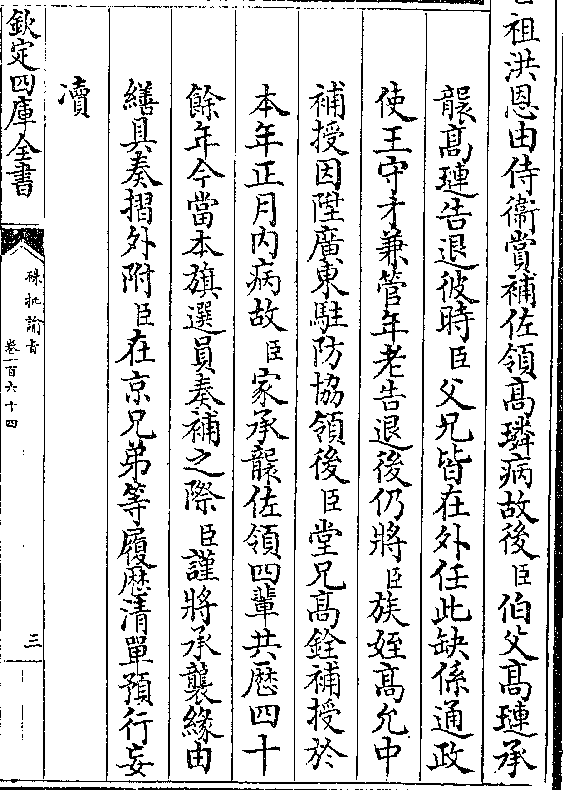 祖洪恩由侍衛賞補佐領高璘病故後臣伯父高璉承
襲高璉告退彼時臣父兄皆在外任此缺係通政
使王守才兼管年老告退後仍將臣族姪高允中
補授因陞廣東駐防協領後臣堂兄高銓補授於
本年正月内病故臣家承襲佐領四輩共歷四十
餘年今當本旗選員奏補之際臣謹將承襲緣由
繕具奏摺外附臣在京兄弟等履歷清單預行妄
瀆
欽定四庫全書
硃批諭旨
卷一百六十四
三